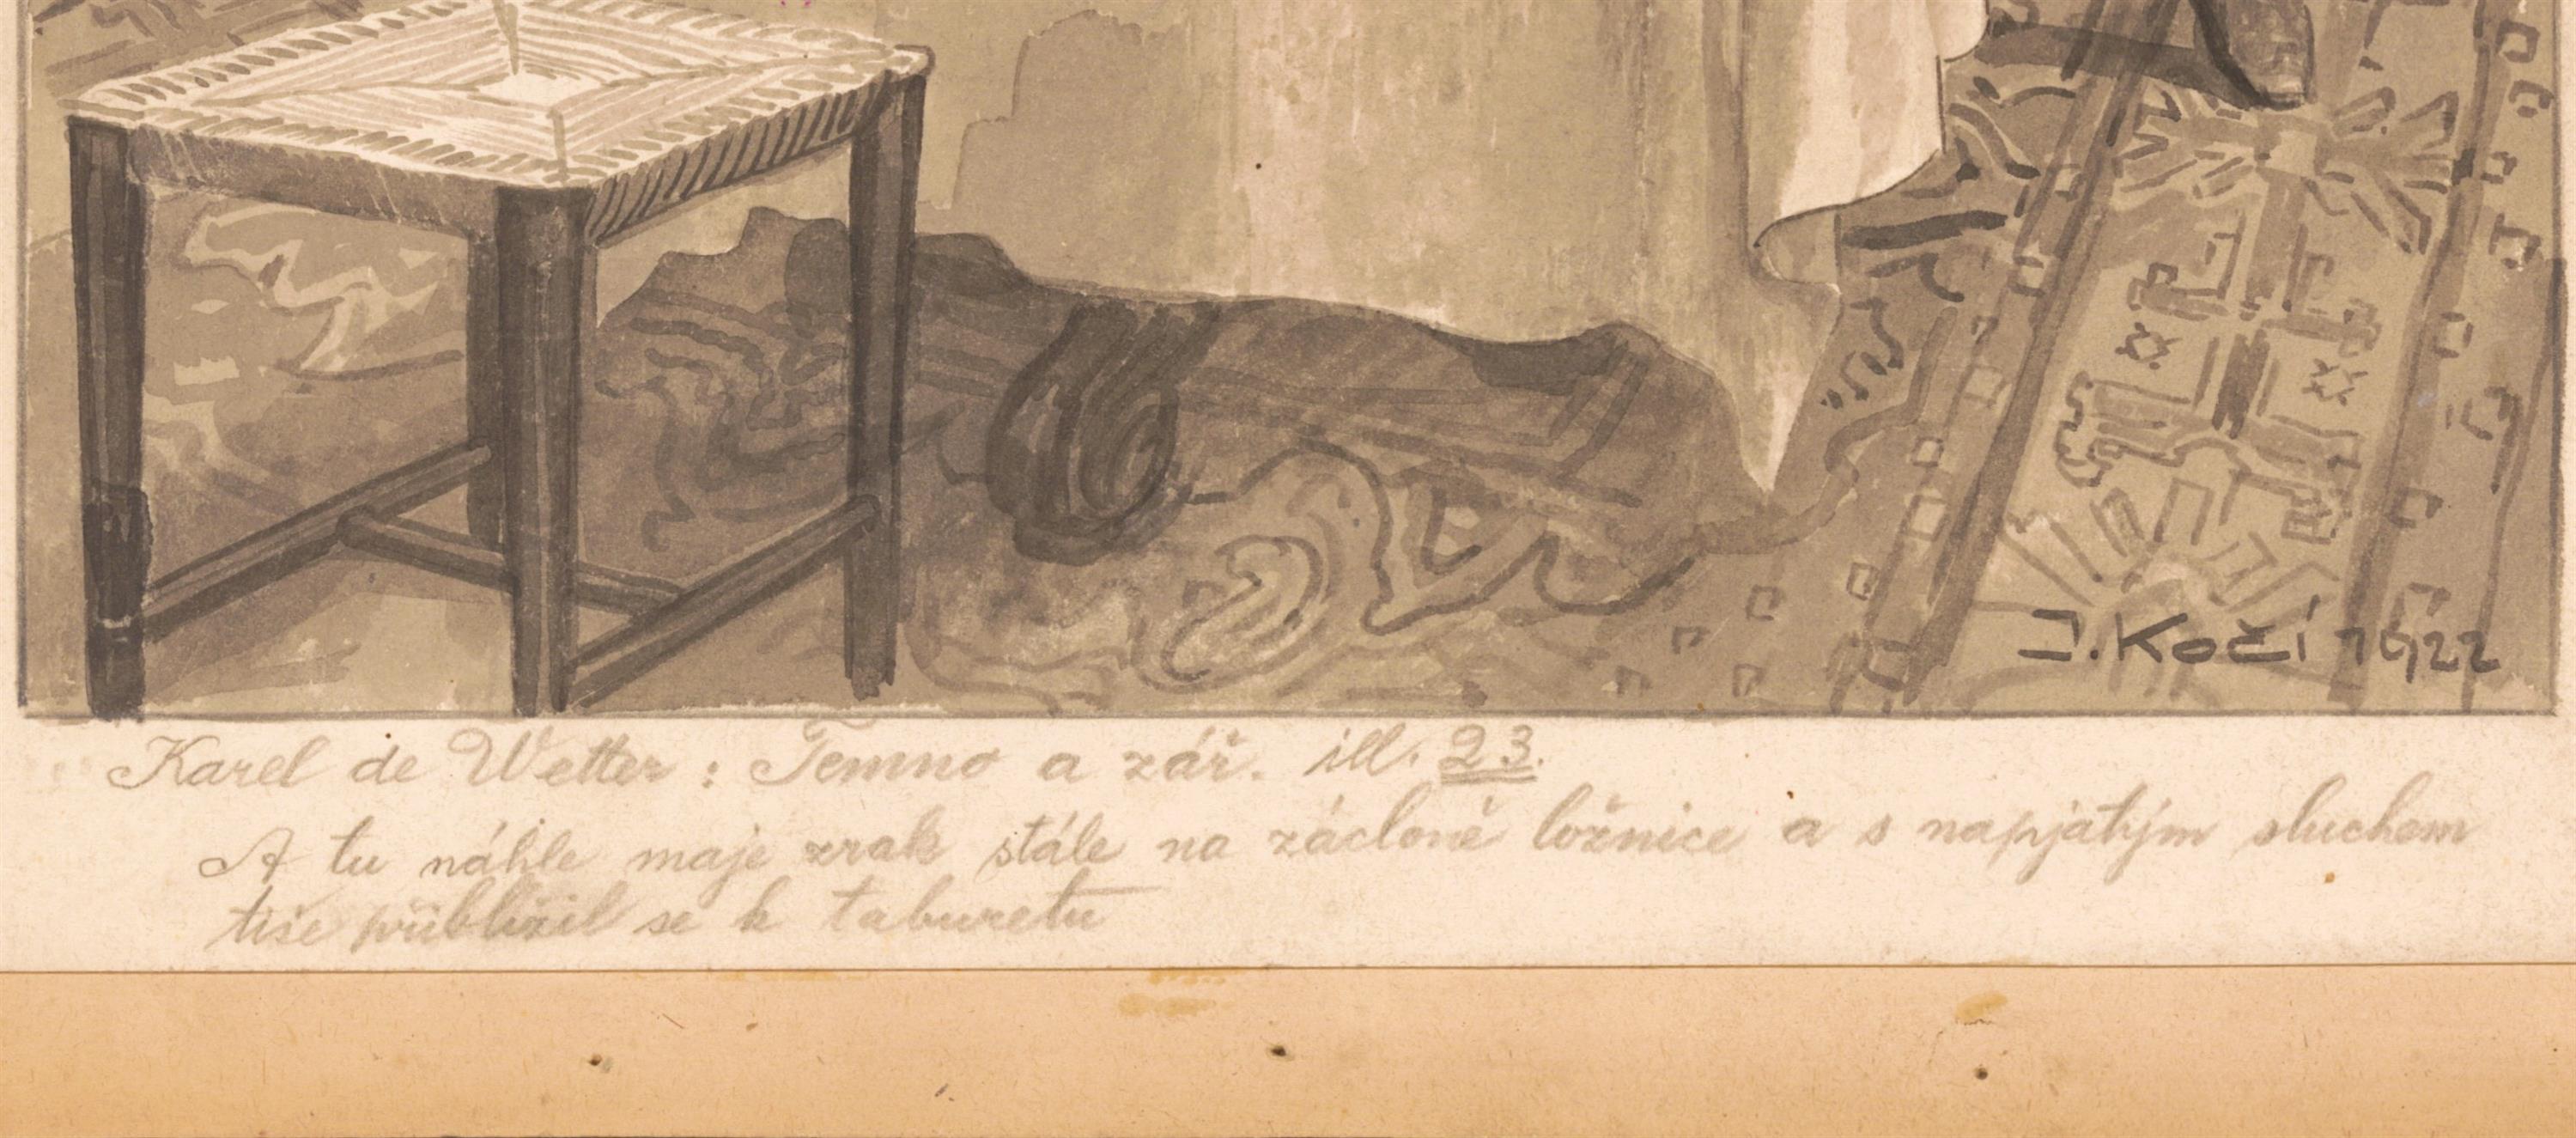 J. Kočí 1922
Karel de Wetter : Temno a zář. ill. 23.
A tu náhle maje zrak stále na zácloně ložnice a s napjatým sluchem
tiše přiblížil se k taburetu